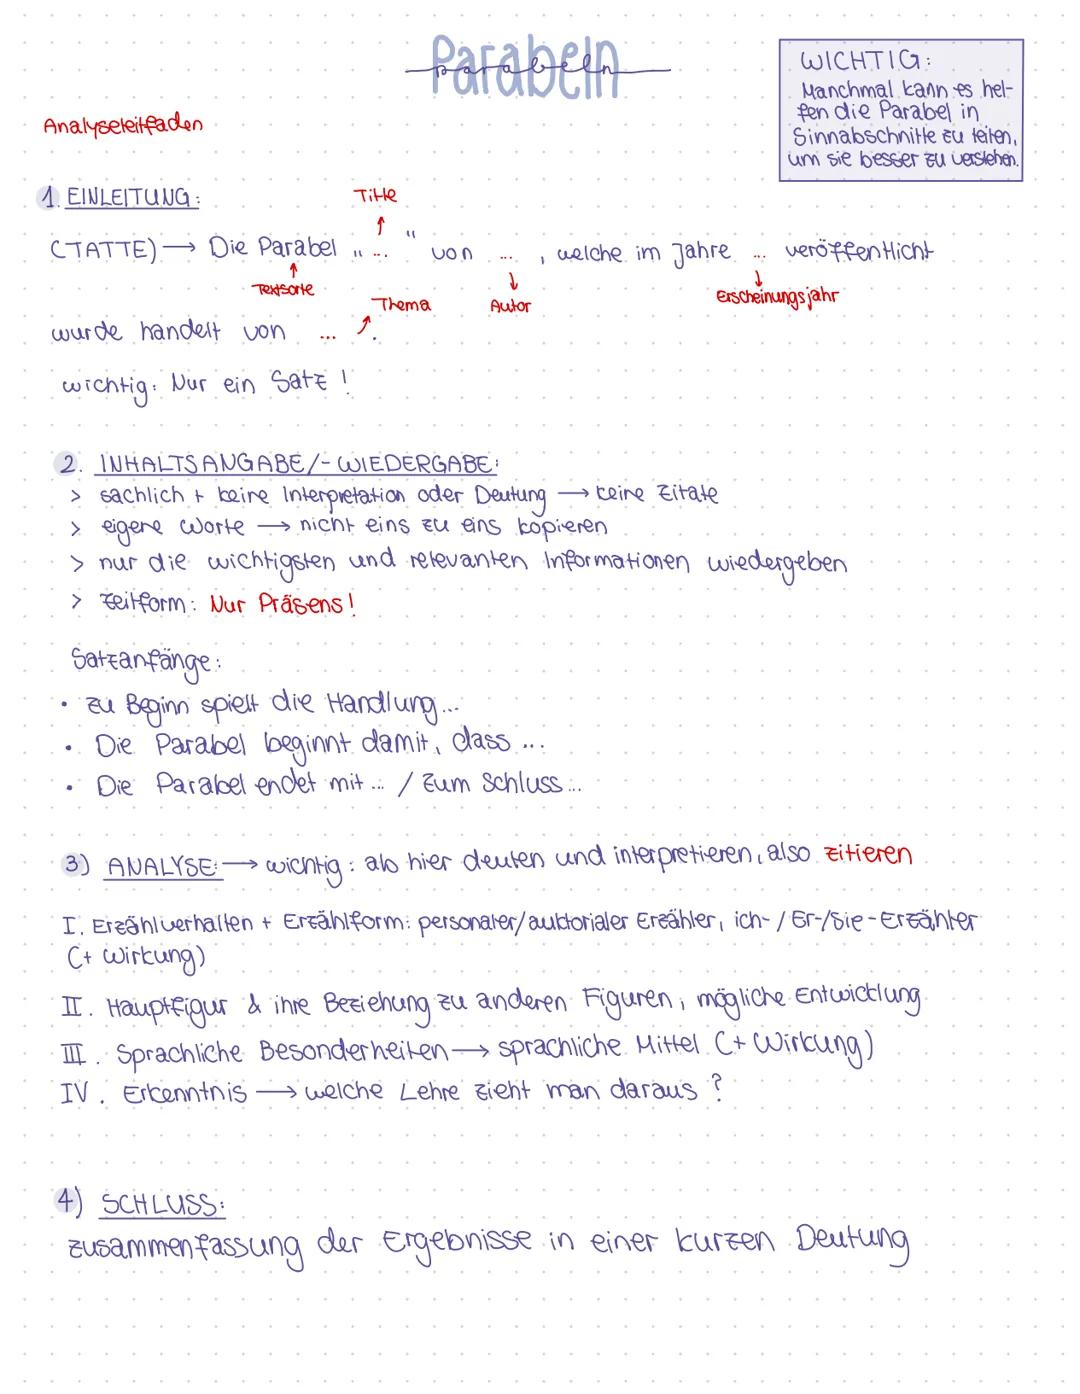 Parabeln
parabeln
WICHTIG:
Manchmal kann es hel-
fen die Parabel in
Sinnabschnitte zu teilen,
um sie besser zu verstehen.
Analyseleitfaden
1. EINLEITUNG:
Titte
(TATTE) → Die Parabel „..." von ... , welche im Jahre ... veröffentlicht
Textsorte
Thema
Autor
Erscheinungsjahr
wurde handelt von ... .
wichtig: Nur ein Satz!
2. INHALTSANGABE/-WIEDERGABE:
> sachlich + keine Interpretation oder Deutung → keine Zitate
> eigene Worte → nicht eins zu eins kopieren
> nur die wichtigsten und relevanten Informationen wiedergeben
> Zeitform: Nur Präsens!
Satzanfänge:
• Zu Beginn spielt die Handlung...
• Die Parabel beginnt damit, dass ...
• Die Parabel endet mit ... / Zum Schluss ...
3) ANALYSE: → wichtig: ab hier deuten und interpretieren, also zitieren
I. Erzählverhalten + Erzählform: personaler/auktorialer Erzähler, ich-/Er-/Sie-Erzähler
(+ Wirkung)
II. Hauptfigur & ihre Beziehung zu anderen Figuren, mögliche Entwicklung
III. Sprachliche Besonderheiten → sprachliche Mittel (+ Wirkung)
IV. Erkenntnis → welche Lehre zieht man daraus?
4) SCHLUSS:
Zusammenfassung der Ergebnisse in einer kurzen Deutung